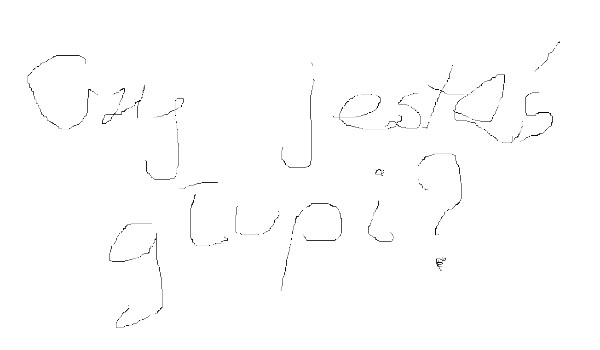 Czy jesteś
głupi?